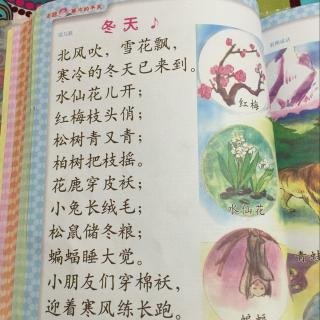 冬天
北风吹，雪花飘，
寒冷的冬天已来到。
水仙花儿开；
红梅枝头俏；
松树青又青；
柏树把枝摇。
花鹿穿皮袄；
小兔长绒毛；
松鼠储冬粮；
蝙蝠睡大觉。
小朋友们穿棉袄，
迎着寒风练长跑。
红梅
水仙花
蝙蝠